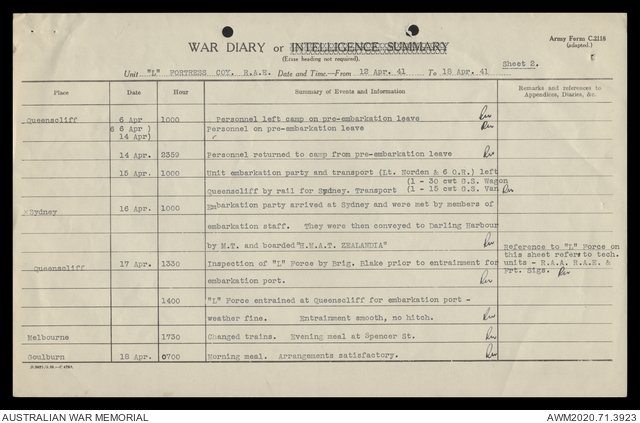 Army Form C.2118
(adapted.)
WAR DIARY or INTELLIGENCE SUMMARY
(Erase heading not required).
Sheet 2.
Unit "L" FORTRESS COY. R.A.E. Date and Time—From 12 Apr. 41 To 18 Apr. 41
Place Date Hour Summary of Events and Information Remarks and references to Appendices, Diaries, &c.
Queenscliff 6 Apr 1000 Personnel left camp on pre-embarkation leave
6 6 Apr ) Personnel on pre-embarkation leave
14 Apr)
14 Apr. 2359 Personnel returned to camp from pre-embarkation leave
15 Apr. 1000 Unit embarkation party and transport (Lt. Norden & 6 O.R.) left
(1 - 30 cwt G.S. Wagon
Queenscliff by rail for Sydney. Transport (1 - 15 cwt G.S. Van
Sydney 16 Apr. 1000 Embarkation party arrived at Sydney and were met by members of
embarkation staff. They were then conveyed to Darling Harbour
by M.T. and boarded "H.M.A.T. ZEALANDIA"
Queenscliff 17 Apr. 1330 Inspection of "L" Force by Brig. Blake prior to entrainment for
embarkation port.
Reference to "L" Force on
this sheet refers to tech.
units - R.A.A. R.A.E. &
Frt. Sigs.
1400 "L" Force entrained at Queenscliff for embarkation port -
weather fine. Entrainment smooth, no hitch.
Melbourne 1730 Changed trains. Evening meal at Spencer St.
Goulburn 18 Apr. 0700 Morning meal. Arrangements satisfactory.
AUSTRALIAN WAR MEMORIAL
AWM2020.71.3923